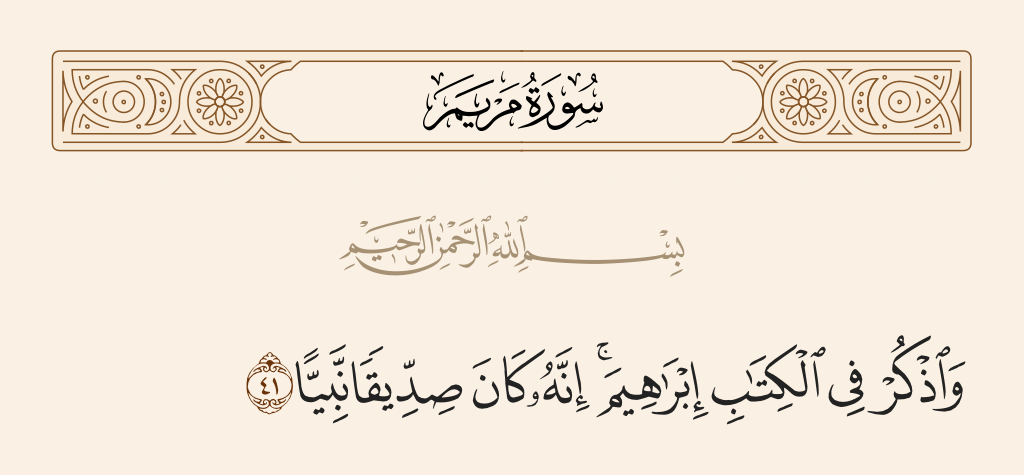 سُورَةُ مَرْيَمَ
بِسْمِ ٱللَّهِ ٱلرَّحْمَٰنِ ٱلرَّحِيمِ
وَٱذْكُرْ فِى ٱلْكِتَٰبِ إِبْرَٰهِيمَ ۚ إِنَّهُۥ كَانَ صِدِّيقًا نَّبِيًّا ٤١